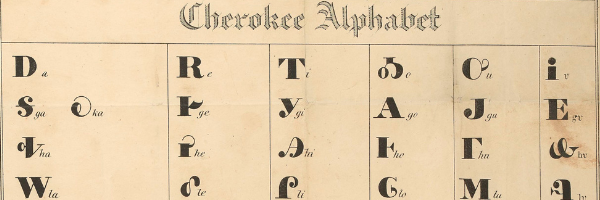 Cherokee Alphabet
Ꭰ a Ꭱ e Ꭲ i Ꭳ o Ꭴ u Ꭵ v
Ꭶ ga Ꭷ ka Ꭸ ge Ꭹ gi Ꭺ go Ꭻ gu Ꭼ gv
Ꭽ ha Ꭾ he Ꭿ hi Ꮀ ho Ꮁ hu Ꮂ hv
Ꮃ la Ꮄ le Ꮅ li Ꮆ lo Ꮇ lu Ꮈ lv